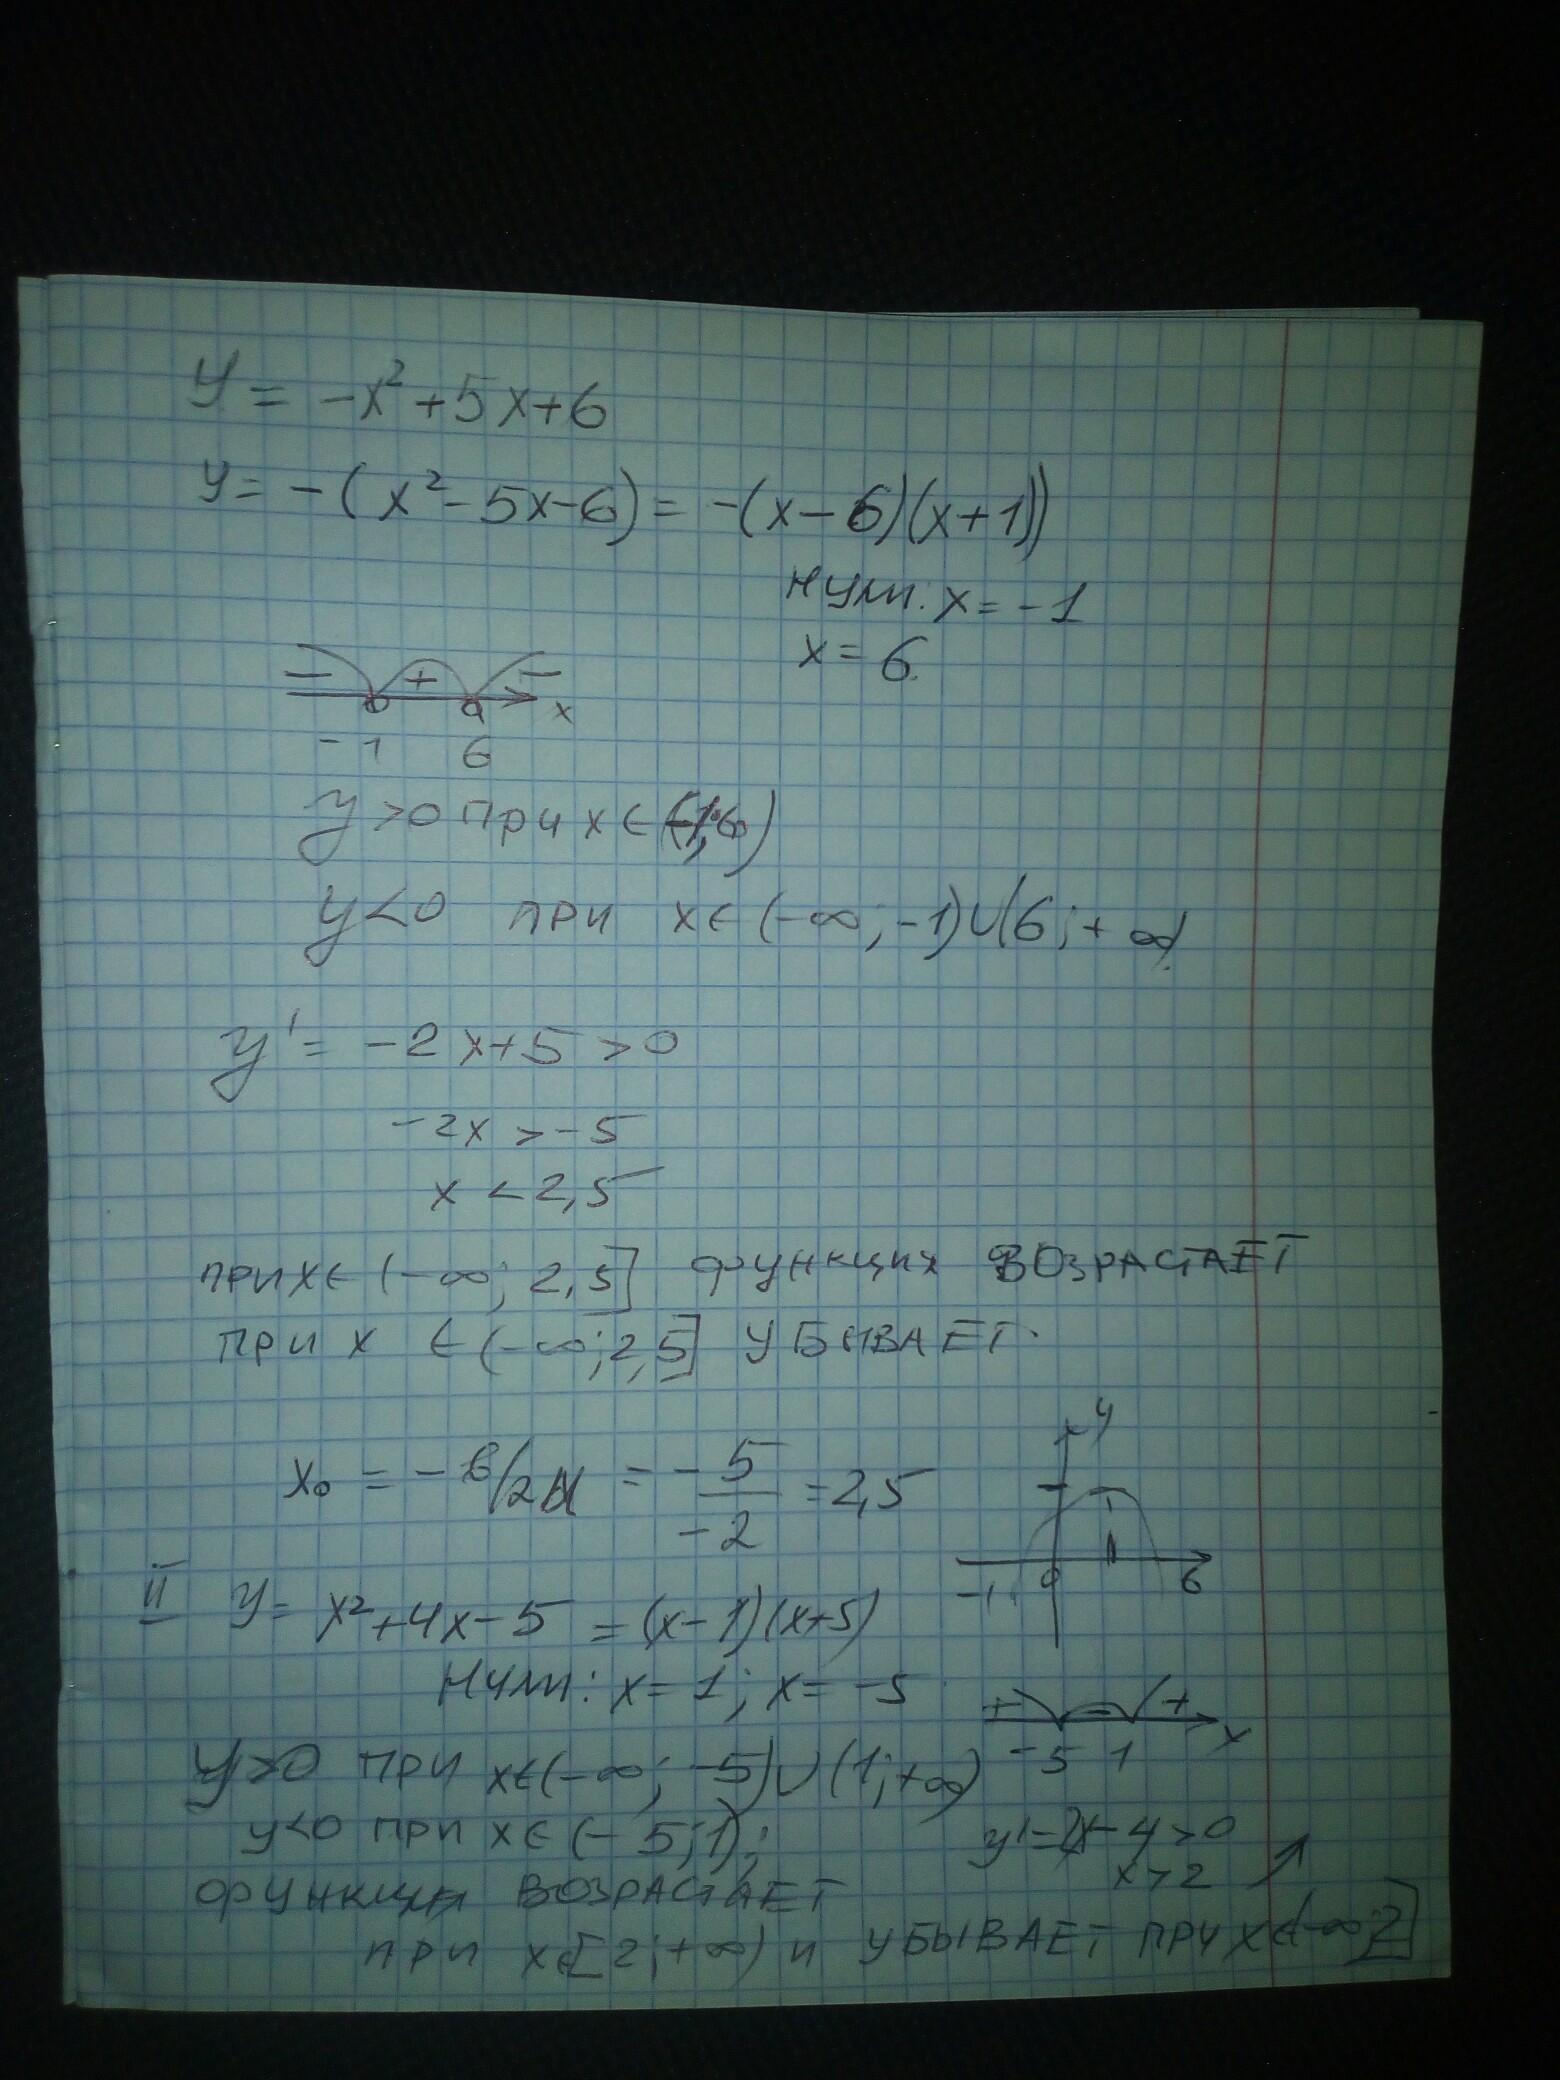 y = -x² + 5x + 6
y = -(x² - 5x - 6) = -(x - 6)(x + 1))
нули: x = -1
x = 6
- + - x
-1 6
y > 0 при x ∈ (-1; 6)
y < 0 при x ∈ (-∞; -1) ∪ (6; + ∞)
y' = -2x + 5 > 0
-2x > -5
x < 2,5
при x ∈ (-∞; 2,5] функция ВОЗРАСТАЕТ
при x ∈ (-∞; 2,5] УБЫВАЕТ.
y
x₀ = -в/2a = -5/-2 = 2,5
-1 0 6
II y = x² + 4x - 5 = (x - 1)(x + 5)
Нули: x = 1; x = -5
+ - + x
-5 1
y > 0 при x ∈ (-∞; -5) ∪ (1; +∞)
y < 0 при x ∈ (-5; 1);
y' = 2x - 4 > 0
x > 2
функция ВОЗРАСТАЕТ
при x ∈ [2; +∞) и УБЫВАЕТ при x ∈ (-∞; 2]